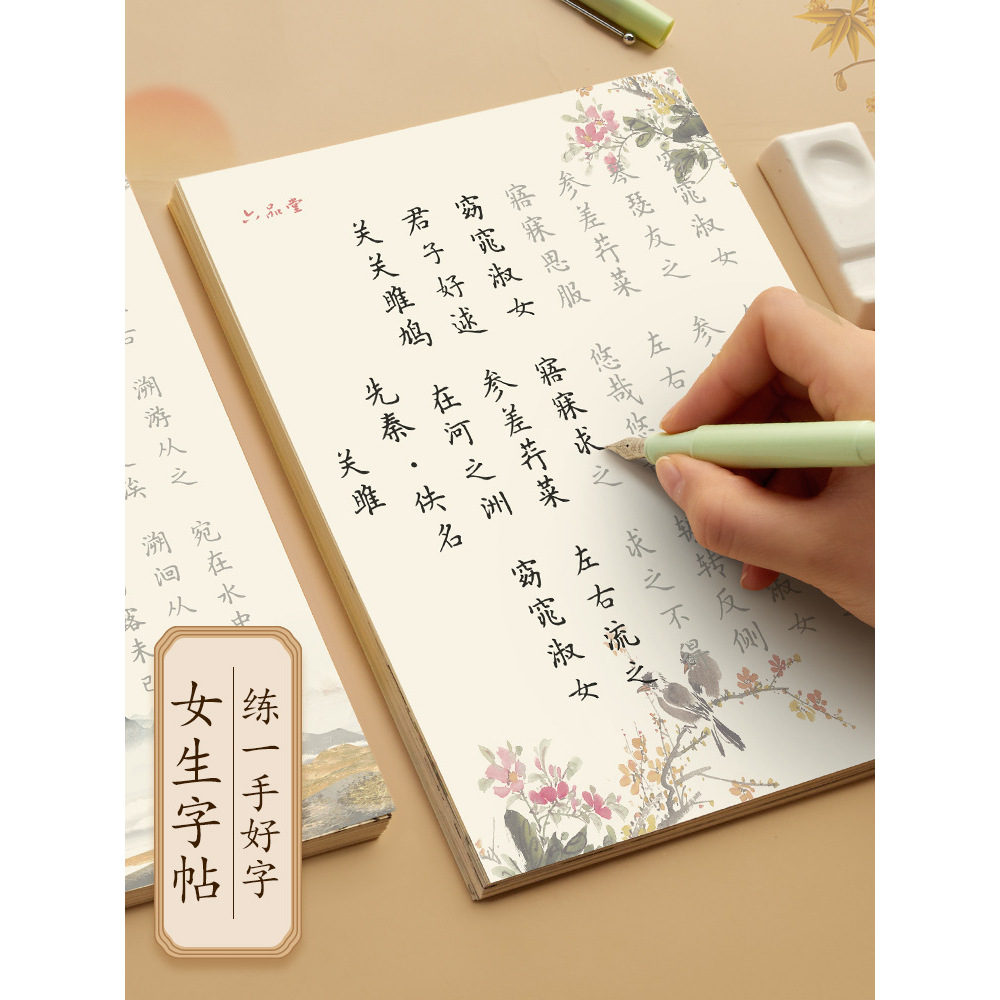 六品堂
关雎
先秦·佚名
关关雎鸠 在河之洲 窈窕淑女
君子好逑 参差荇菜 左右流之
窈窕淑女 寤寐求之 求之不得
寤寐思服 悠哉悠 转反侧
参差荇菜 左右 淑女
琴瑟友之 参
窈窕淑女
溯游从之
宛在水中
溯洄从
未已
练一手好字
女生字帖